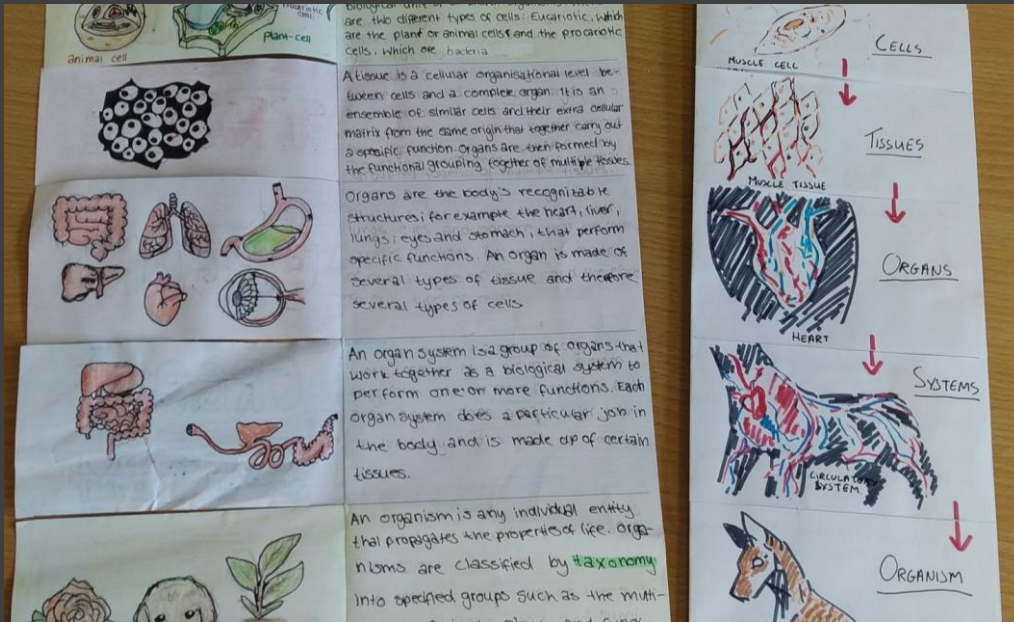 procariotic
cell
plant-cell
animal cell
biological unit of
are two different types of cells: Eucariotic, which
are the plant or animal cells and the procariotic
cells, which are bacteria
A tissue is a cellular organisational level be-
tween cells and a complete organ. It is an
ensemble of similar cells and their extra cellular
matrix from the same origin that together carry out
a specific function. Organs are then formed by
the functional grouping together of multiple tissues.
Organs are the body's recognizable
structures; for example the heart, liver,
lungs, eyes and stomach, that perform
specific functions. An organ is made of
several types of tissue and therefore
several types of cells
An organ system is a group of organs that
work together as a biological system to
perform one or more functions. Each
organ system does a particular job in
the body and is made up of certain
tissues.
An organism is any individual entity
that propagates the properties of life. Orga-
nisms are classified by taxonomy
into specified groups such as the mutli-
MUSCLE CELL
CELLS
TISSUES
MUSCLE TISSUE
ORGANS
HEART
SYSTEMS
CIRCULATORY
SYSTEM
ORGANISM